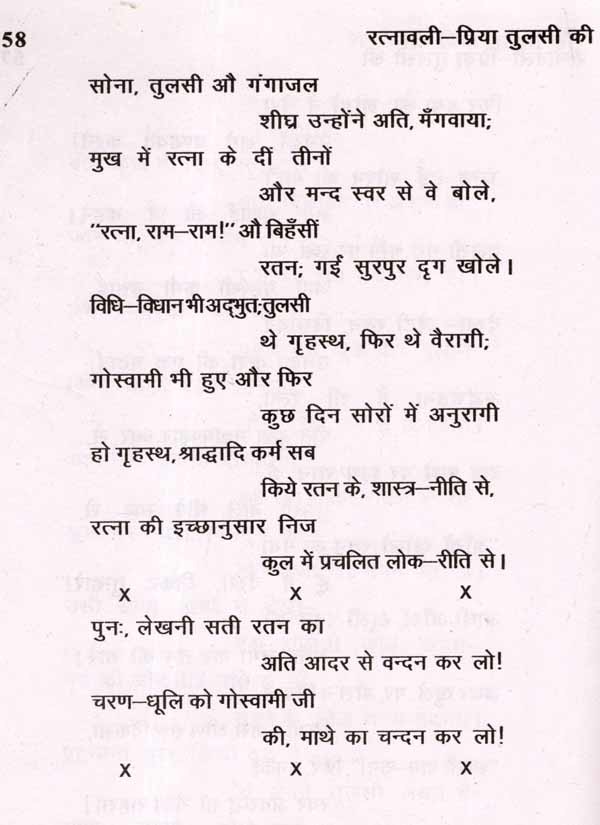 58 रत्नावली–प्रिया तुलसी की
सोना, तुलसी औ गंगाजल
शीघ्र उन्होंने अति, मँगवाया;
मुख में रत्ना के दीं तीनों
और मन्द स्वर से वे बोले,
"रत्ना, राम–राम!" औ बिहँसीं
रतन; गईं सुरपुर दृग खोले।
विधि–विधान भी अद्भुत; तुलसी
थे गृहस्थ, फिर थे वैरागी;
गोस्वामी भी हुए और फिर
कुछ दिन सोरों में अनुरागी
हो गृहस्थ, श्राद्धादि कर्म सब
किये रतन के, शास्त्र–नीति से,
रत्ना की इच्छानुसार निज
कुल में प्रचलित लोक–रीति से।
X X X
पुनः, लेखनी सती रतन का
अति आदर से वन्दन कर लो!
चरण–धूलि को गोस्वामी जी
की, माथे का चन्दन कर लो!
X X X